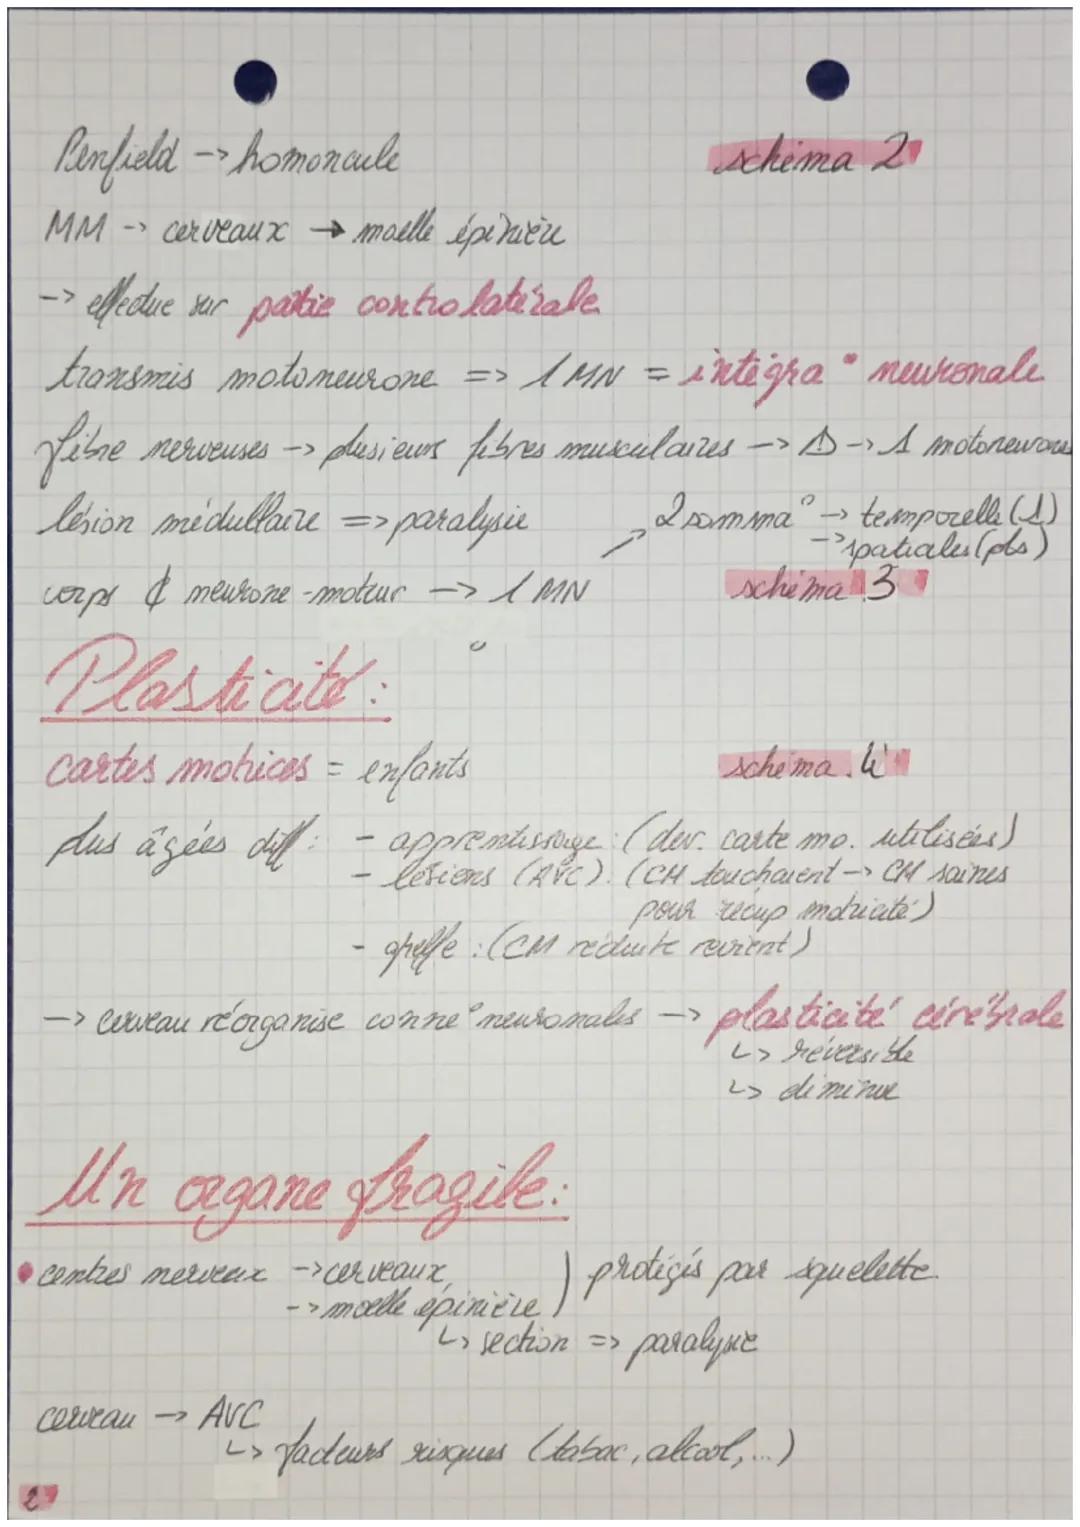 Penfield -> homoncule
schéma 2
MM -> cerveaux -> moelle épinière
-> effectue sur partie controlatérale
transmis motoneurone => 1 MN = intégra° neuronale
fibre nerveuses -> plusieurs fibres musculaires -> ⚠ -> 1 motoneurone
lésion médullaire => paralysie
2 somma° -> temporelle (1)
-> spatiales (pls)
corps ¢ neurone-moteur -> 1 MN
schéma 3
Plasticité :
cartes motrices = enfants
schéma 4
plus âgées diff : - apprentissage : (dev. carte mo. utilisées)
- lésions (AVC) : (CM touchaient -> CM saines
pour récup motricité)
- greffe : (CM réduite revient)
-> cerveau réorganise conne° neuronales -> plasticité cérébrale
↳ réversible
↳ diminue
Un organe fragile :
• centres nerveux -> cerveaux
-> moelle épinière ) protégés par squelette
↳ section => paralysie
cerveau -> AVC
↳ facteurs risques (tabac, alcool, ...)
2